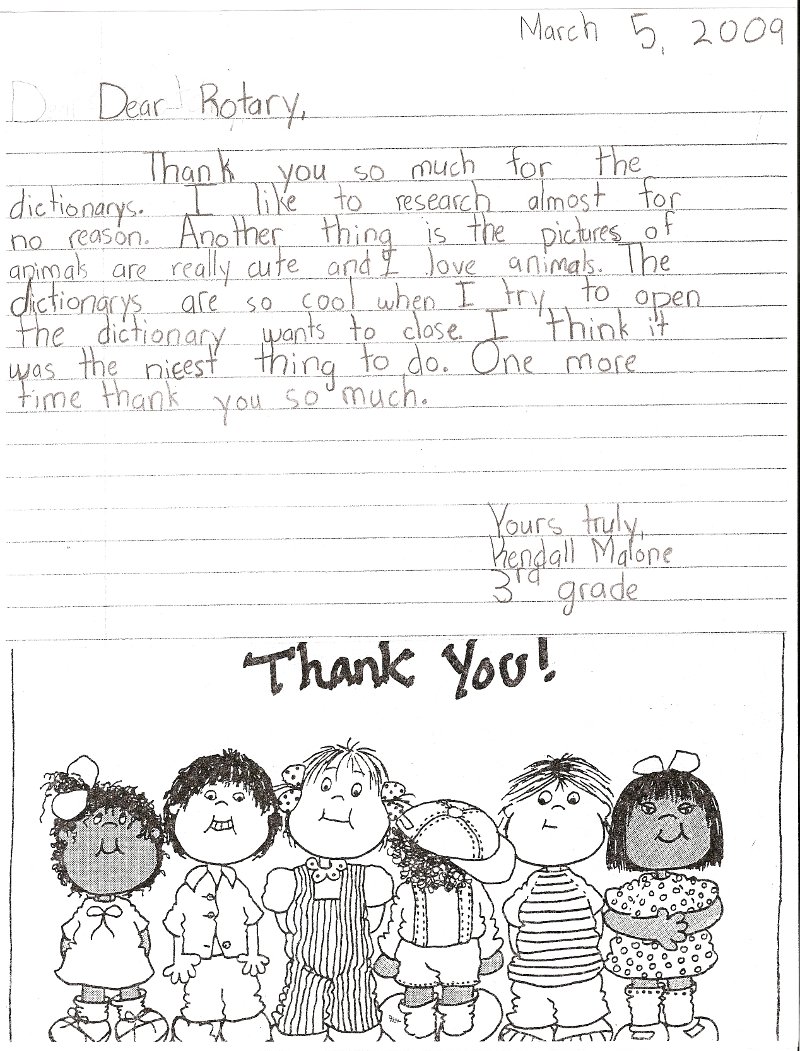 March 5, 2009
Dear Rotary,
Thank you so much for the
dictionarys. I like to research almost for
no reason. Another thing is the pictures of
animals are really cute and I love animals. The
dictionarys are so cool when I try to open
the dictionary wants to close. I think it
was the nicest thing to do. One more
time thank you so much.
Yours truly,
Kendall Malone
3rd grade
Thank You!